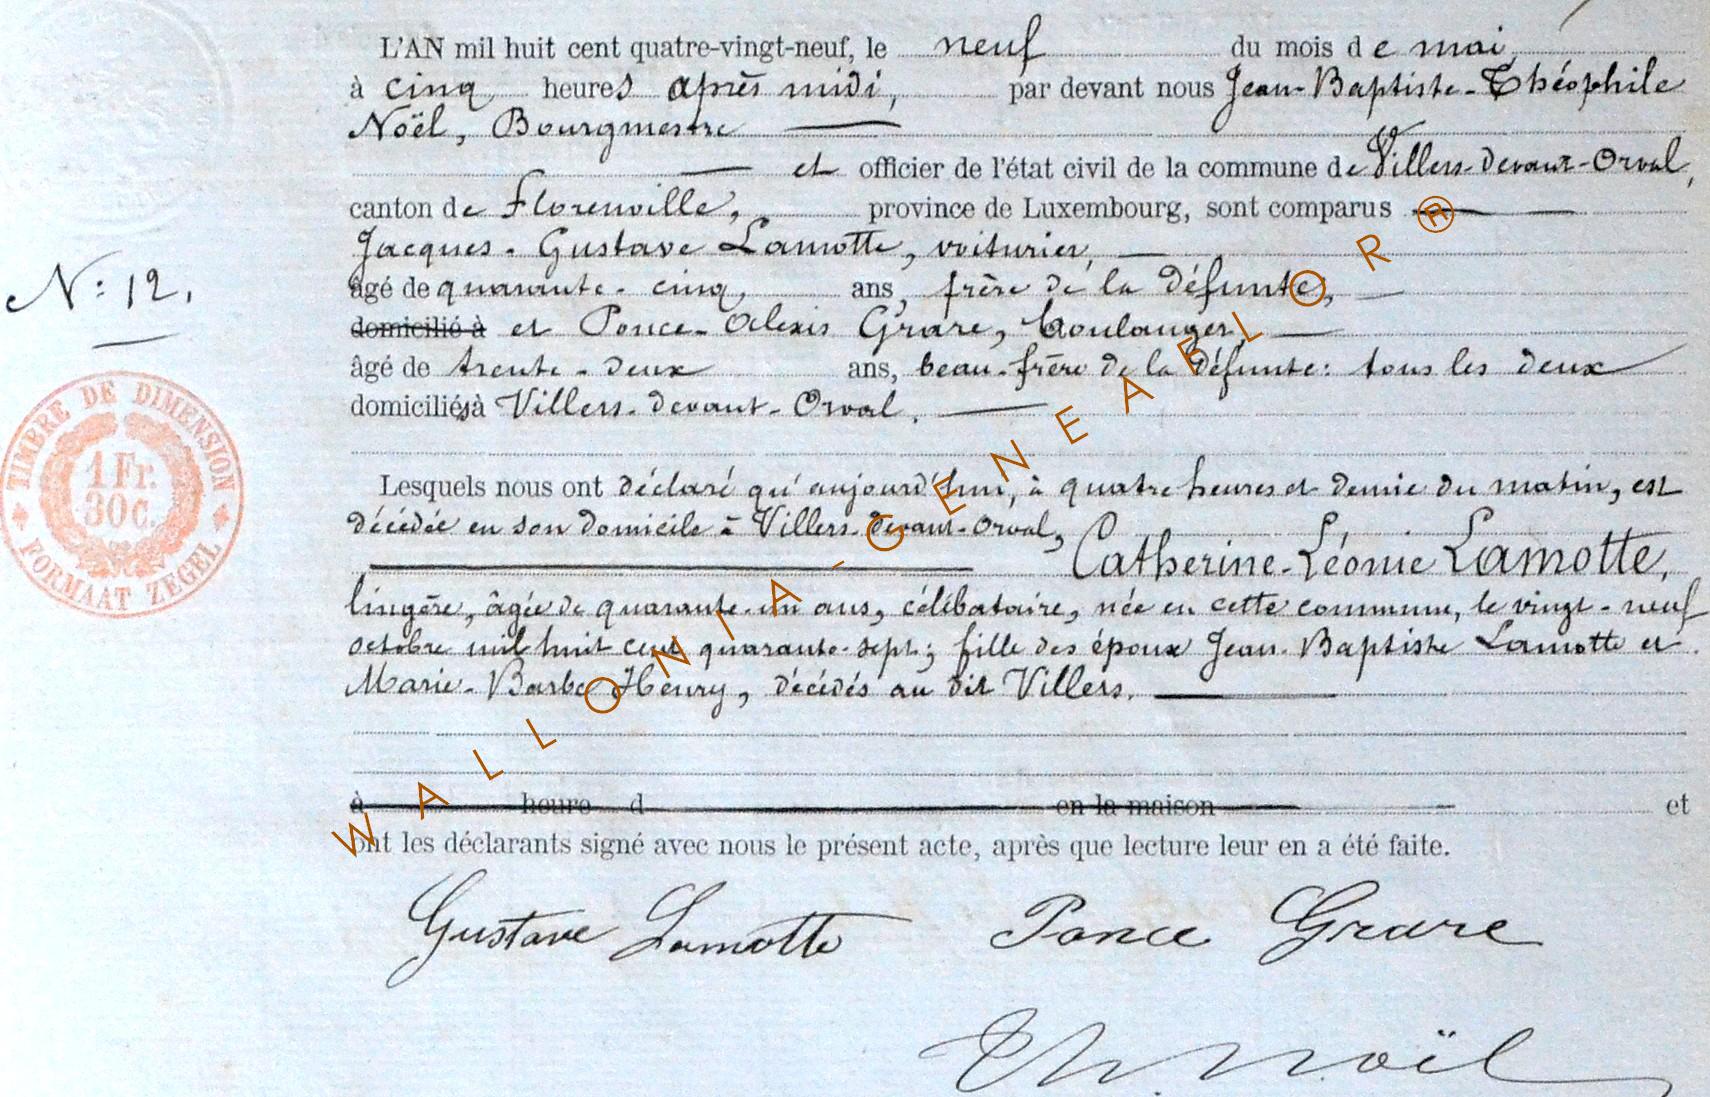 L'AN mil huit cent quatre-vingt-neuf, le neuf du mois de mai
à cinq heures après midi, par devant nous Jean-Baptiste-Théophile
Noël, Bourgmestre
et officier de l'état civil de la commune de Villers-devant-Orval,
canton de Florenville, province de Luxembourg, sont comparus
Jacques-Gustave Lamotte, voiturier,
âgé de quarante-cinq ans, frère de la défunte,
N: 12.
domicilié à et Ponce-Alexis Grare, boulanger,
âgé de trente-deux ans, beau-frère de la défunte: tous les deux
domiciliés à Villers-devant-Orval.
TIMBRE DE DIMENSION
1 Fr.
30c.
FORMAAT ZEGEL
Lesquels nous ont déclaré qu'aujourd'hui, à quatre heures et demie du matin, est
décédée en son domicile à Villers-devant-Orval,
Catherine-Léonie Lamotte,
lingère, âgée de quarante-un ans, célibataire, née en cette commune, le vingt-neuf
octobre mil huit cent quarante-sept; fille des époux Jean-Baptiste Lamotte et
Marie-Barbe Henry, décédés au dit Villers.
à heure d en la maison et
ont les déclarants signé avec nous le présent acte, après que lecture leur en a été faite.
Gustave Lamotte Ponce Grare
Th. Noël
WALLONIA-GENEAFLOR®